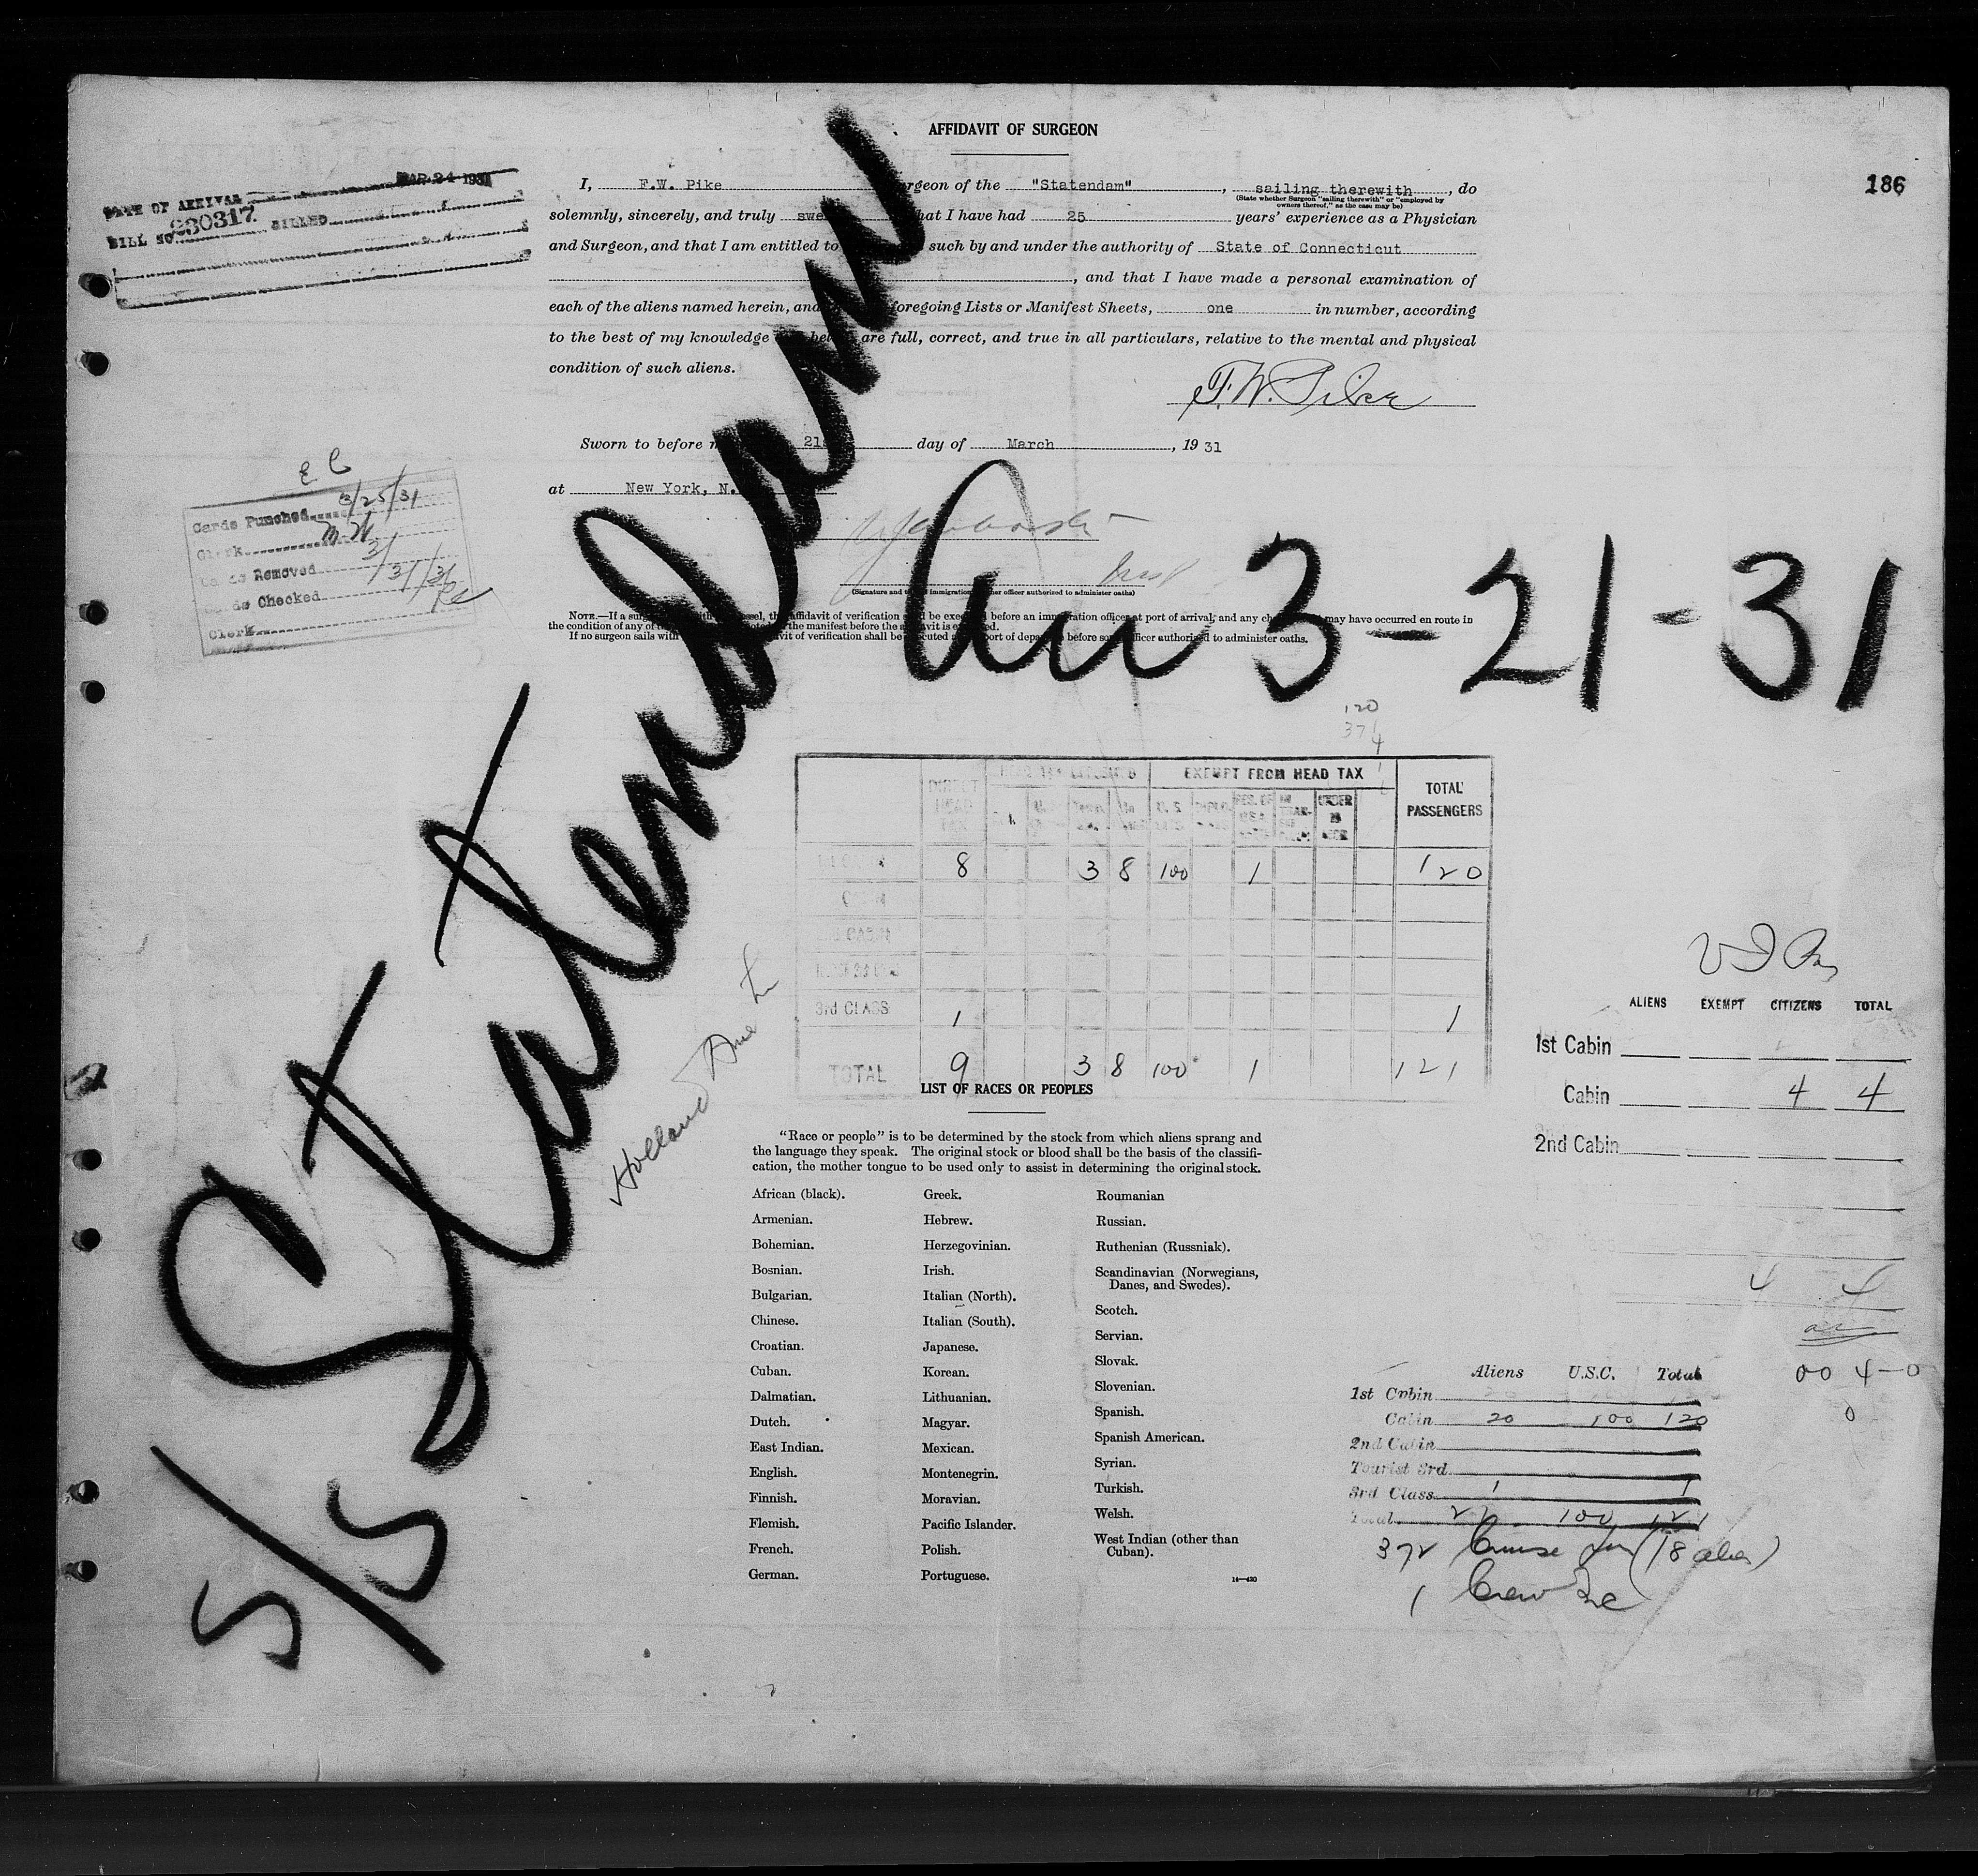 AFFIDAVIT OF SURGEON
186
MAR 24 1931
DATE OF ARRIVAL
BILL NO. 630317 BILLED
I, F.W. Pike rgeon of the "Statendam", sailing therewith, do
(State whether Surgeon "sailing therewith" or "employed by
owners thereof," as the case may be)
solemnly, sincerely, and truly swe hat I have had 25 years' experience as a Physician
and Surgeon, and that I am entitled to such by and under the authority of State of Connecticut
, and that I have made a personal examination of
each of the aliens named herein, and foregoing Lists or Manifest Sheets, one in number, according
to the best of my knowledge bel are full, correct, and true in all particulars, relative to the mental and physical
condition of such aliens.
F.W. Pike
Sworn to before m 21s day of March, 19 31
at New York, N.
E C
Cards Punched 3/25/31
Clerk
Cards Removed
Cards Checked
Clerk
(Signature and t Immigration her officer authorized to administer oaths)
NOTE.—If a surg ith ssel, th affidavit of verification l be exec before an immigration officer at port of arrival, and any ch may have occurred en route in
the condition of any of noted the manifest before the avit is e ed.
If no surgeon sails with vit of verification shall be ecuted port of depar before so fficer authorized to administer oaths.
S/S Statendam
Arr 3-21-31
120
374
DIRECT HEAD TAX
EXEMPT FROM HEAD TAX
TOTAL PASSENGERS
UNDER 16 ACC
8 3 8 100 1 120
2nd CABIN
3rd CLASS 1 1
TOTAL 9 3 8 100 1 121
Holland Ame L
ALIENS EXEMPT CITIZENS TOTAL
1st Cabin
Cabin 4 4
2nd Cabin
4 4
00 4-0
0
LIST OF RACES OR PEOPLES
"Race or people" is to be determined by the stock from which aliens sprang and
the language they speak. The original stock or blood shall be the basis of the classifi-
cation, the mother tongue to be used only to assist in determining the original stock.
African (black).
Armenian.
Bohemian.
Bosnian.
Bulgarian.
Chinese.
Croatian.
Cuban.
Dalmatian.
Dutch.
East Indian.
English.
Finnish.
Flemish.
French.
German.
Greek.
Hebrew.
Herzegovinian.
Irish.
Italian (North).
Italian (South).
Japanese.
Korean.
Lithuanian.
Magyar.
Mexican.
Montenegrin.
Moravian.
Pacific Islander.
Polish.
Portuguese.
Roumanian
Russian.
Ruthenian (Russniak).
Scandinavian (Norwegians,
Danes, and Swedes).
Scotch.
Servian.
Slovak.
Slovenian.
Spanish.
Spanish American.
Syrian.
Turkish.
Welsh.
West Indian (other than
Cuban).
14—430
Aliens U.S.C. Total
1st Cabin
Cabin 20 100 120
2nd Cabin
Tourist 3rd
3rd Class 1 1
Total 21 100 121
372 Cruise (18 alien)
1 Crew